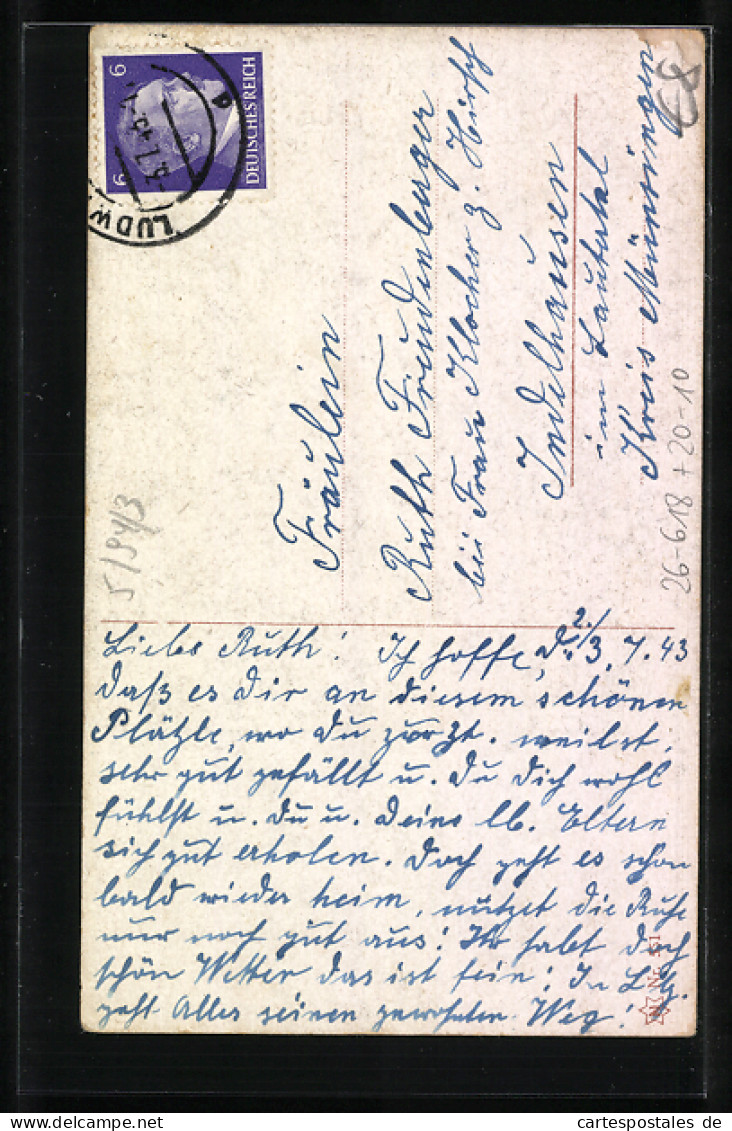 6 6
DEUTSCHES REICH
LUDW
5/94/3
Fräulein
Ruth Freudenberger
bei Frau Klocher z. Hirsch
Indelhausen
im Lautertal
Kreis Münsingen
26-618 + 20-10
2./3. 7. 43
Liebe Ruth! Ich hoffe,
daß es Dir an diesem schönen
Plätzle, wo Du zur Zt. weilst,
sehr gut gefällt u. Du Dich wohl
fühlst u. Du u. Deine lb. Eltern
sich gut erholen. Doch geht es schon
bald wieder heim, nützet die Ruhe
nur noch gut aus! Ihr habt doch
schön Wetter das ist fein! In
geht Alles seinen gewohnten Weg!
www.ansichtskartenversand.com
cartespostales de